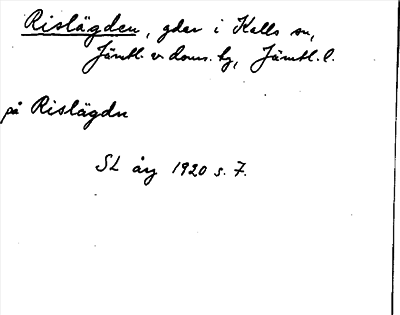 Rislägden, gdar i Kalls sn,
Jämtl. v. doms. hg, Jämtl. l.
på Rislägdn
SL årg 1920 s. 7.